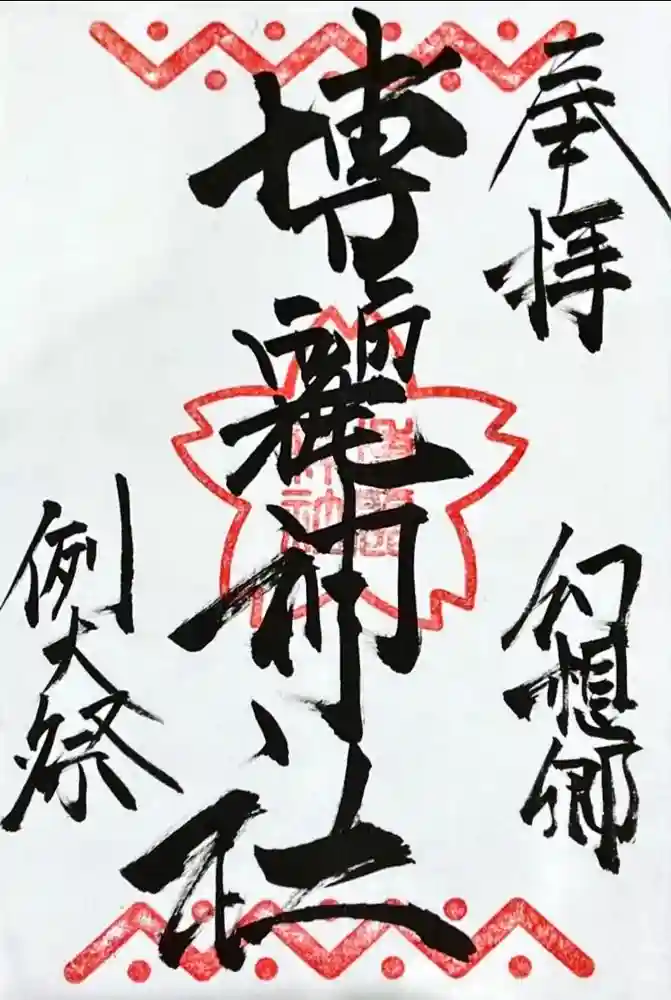 奉拝
幻想郷
博麗神社
例大祭